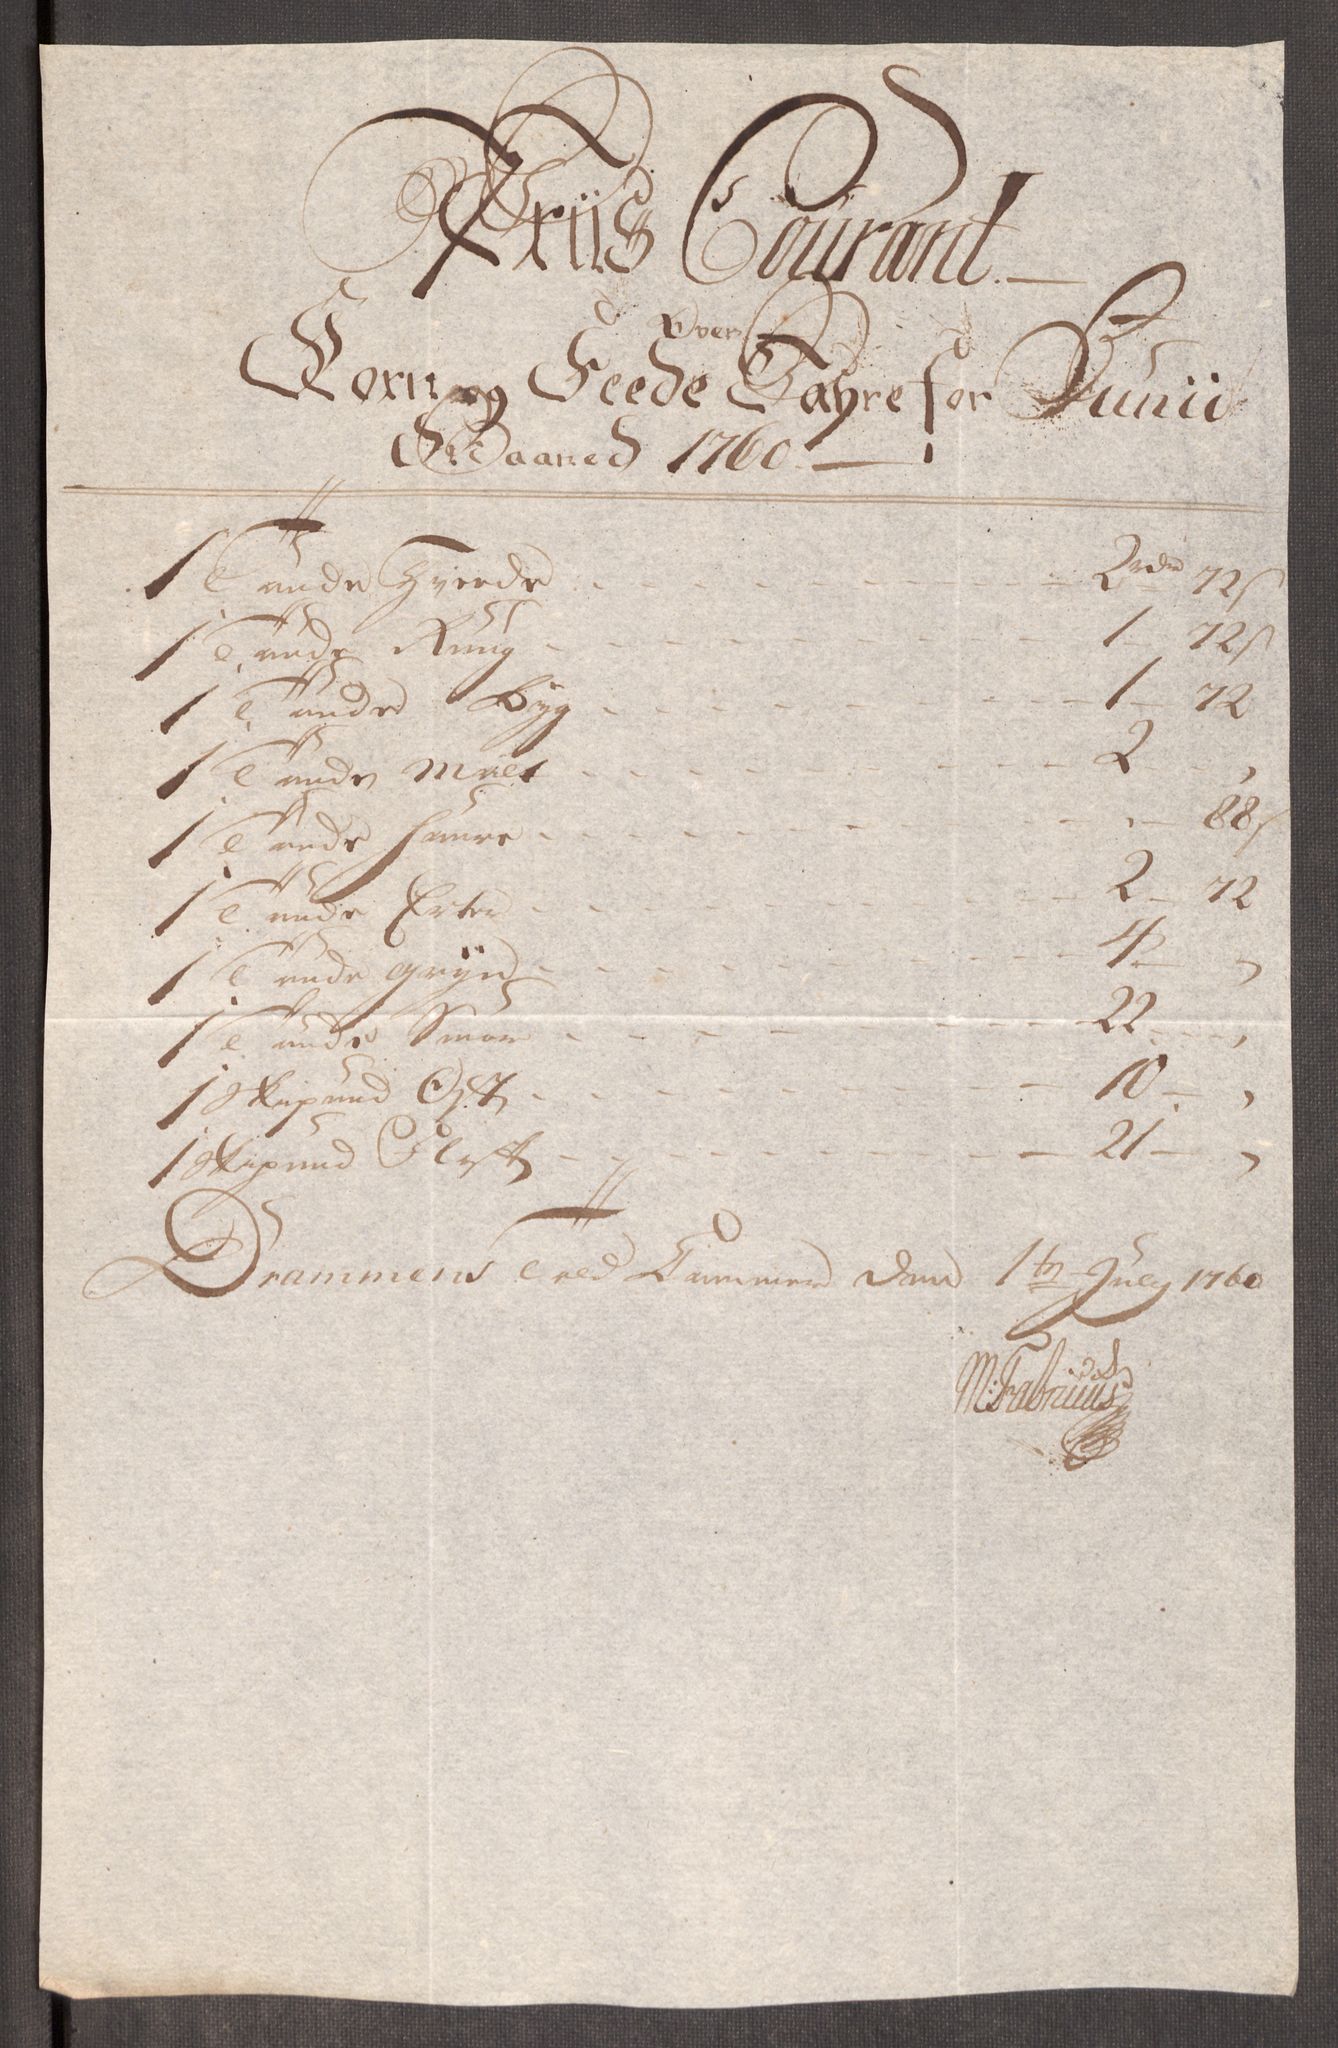 Priis Courant
Over
Korn og Feede Vahre for Junii
Maaned 1760
1 Tønde Hveede 2 rdr 72 s
1 Tønde Rug 1 72 s
1 Tønde Byg 1 72
1 Tønde Malt 2 ,
1 Tønde Haure - 88 s
1 Tønde Erter 2 72
1 Tønde gryn 4 ,
1 Tønde Smør 22 ,
1 Skipund Ost 10 ,
1 Skipund Flesk 21 ,
Drammens Told Cammer den 1te July 1760
M: Fabritius